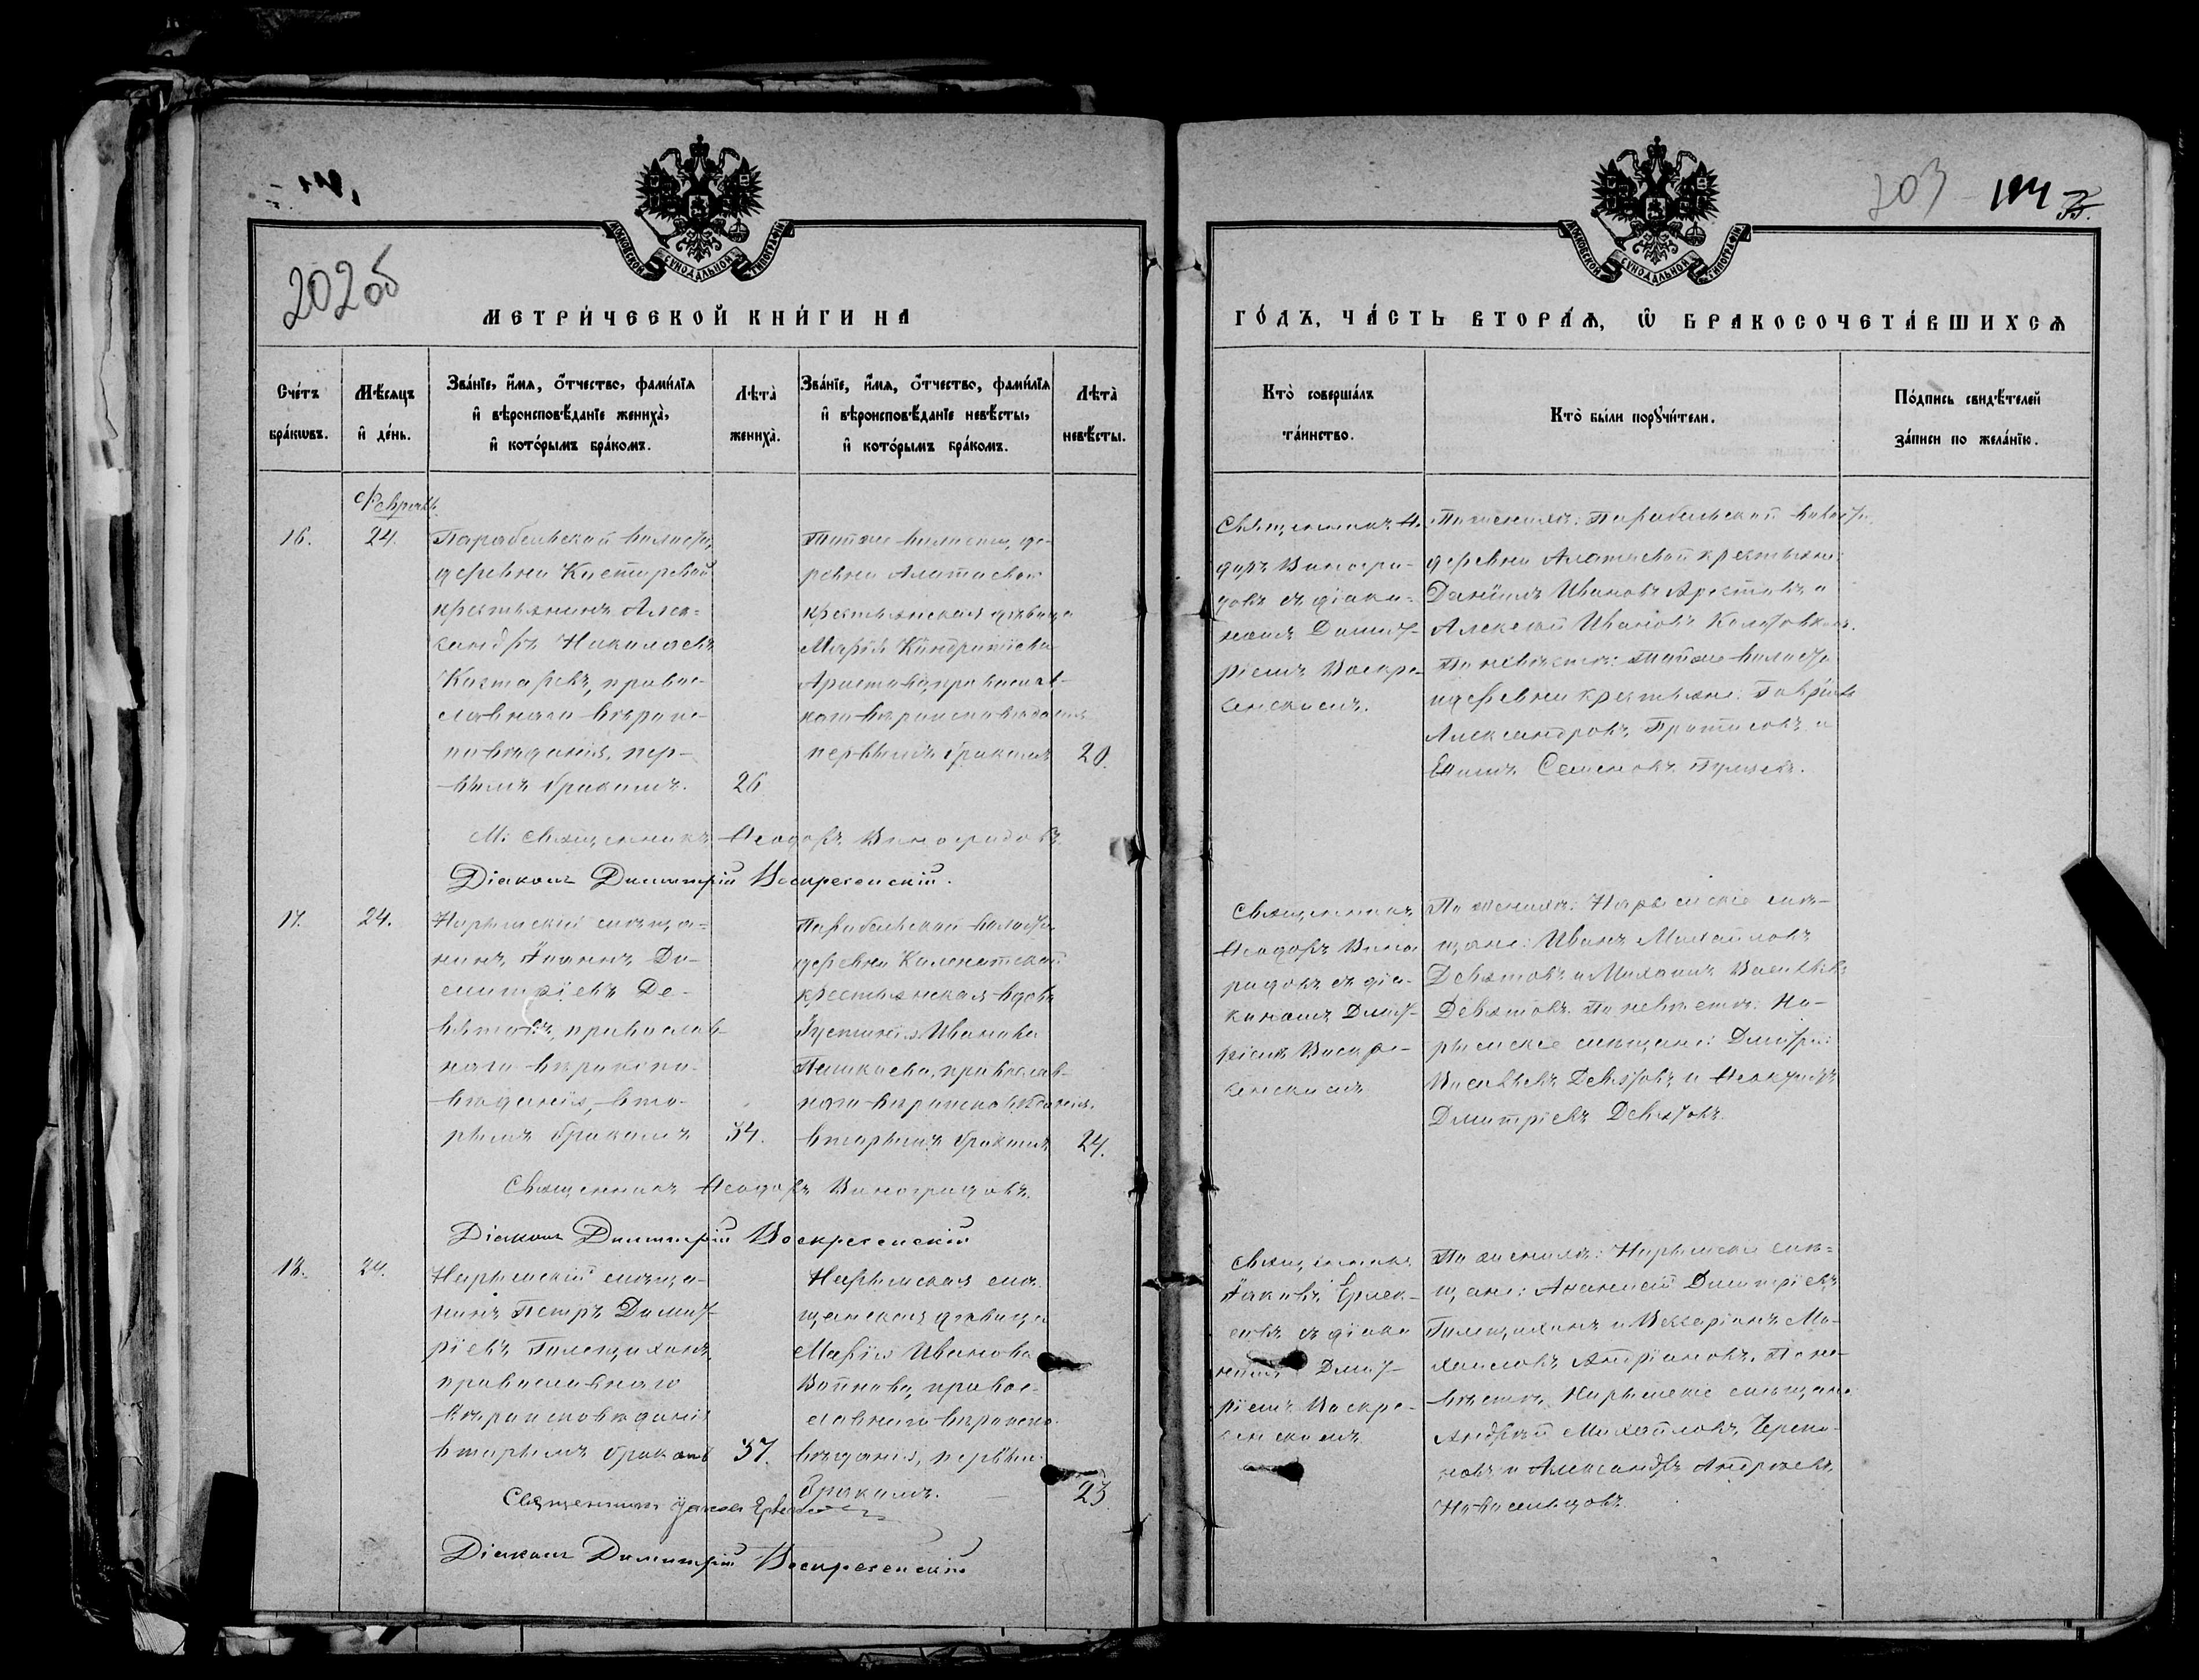 202об
МОСКОВСКОЙ СѴНОДАЛЬНОЙ ТИПОГРАФІИ
МЕТРИ́ЧЕСКОЙ КНИ́ГИ НА
Сче́тъ бра́кѡвъ.
Мѣ́сѧцъ и҆ де́нь.
Зва́нїе, и҆́мѧ, ѻ҆́тчество, фами́лїѧ
и҆ вѣроисповѣ́данїе жениха̀,
и҆ кото́рымъ бра́комъ.
Лѣта̀ жениха̀.
Зва́нїе, и҆́мѧ, ѻ҆́тчество, фами́лїѧ
и҆ вѣроисповѣ́данїе невѣ́сты,
и҆ кото́рымъ бра́комъ.
Лѣта̀ невѣ́сты.
Февраль
16.
24.
Парабельской волости,
деревни Костаревой
крестьянинъ Алек-
сандръ Николаевъ
Костаревъ, право-
славнаго вѣроис-
повѣданія, пер-
вымъ бракомъ.
26
Тойже волости, де-
ревни Алатаевой
крестьянская дѣвица
Марія Кондратіева
Аристова, православ-
наго вѣроисповѣданія
первымъ бракомъ
20.
Священникъ Ѳеодоръ Виноградовъ
Діаконъ Димитрій Воскресенскій.
17.
24.
Нарымскій мѣща-
нинъ Іоаннъ Ди-
митріевъ Де-
вятовъ, православ-
наго вѣроиспо-
вѣданія, вто-
рымъ бракомъ
34.
Парабельской волости
деревни
крестьянская вдова
Іустинія Иванова
православ-
наго вѣроисповѣданія,
вторымъ бракомъ
24.
Священникъ Ѳеодоръ Виноградовъ.
Діаконъ Димитрій Воскресенскій
18.
24.
Нарымскій мѣща-
нинъ Петръ Димит-
ріевъ Голещихинъ,
православнаго
вѣроисповѣданія
вторымъ бракомъ
37.
Нарымская мѣ-
щанская дѣвица
Марія Иванова
правос-
лавнаго вѣроиспо-
вѣданія, первымъ
бракомъ.
23
Священникъ Іаковъ
Діаконъ Димитрій Воскресенскій
203
МОСКОВСКОЙ СѴНОДАЛЬНОЙ ТИПОГРАФІИ
ГО́ДЪ, ЧА́СТЬ ВТОРА́Ѧ, Ѡ҆ БРАКОСОЧЕТА́ВШИХСѦ
Кто̀ соверша́лъ
та́инство.
Кто̀ бы́ли порꙋчи́тели.
По́дпись свидѣ́телей
за́писи по жела́нїю.
Священникъ Ѳ.
доръ Виногра-
довъ съ діако-
номъ Димит-
ріемъ Воскре-
сенскимъ.
По женихѣ: Парабельской волости,
деревни Алатаевой крестьяне:
Даніилъ Ивановъ Аристовъ и
Алексѣй Ивановъ
По невѣстѣ: Тойже волости
и деревни крестьяне: Гавріилъ
Александровъ Протасовъ и
Семеновъ
Священникъ
Ѳеодоръ Вино-
градовъ съ діа-
кономъ Димит-
ріемъ Воскре-
сенскимъ
По женихѣ: Нарымскіе мѣ-
щане: Иванъ Михайловъ
Девятовъ и Михаилъ Васильевъ
Девятовъ. По невѣстѣ: На-
рымскіе мѣщане: Димитрій
Васильевъ Девятовъ и
Димитріевъ Девятовъ.
Священникъ
Іаковъ
съ діако-
номъ Димит-
ріемъ Воскре-
сенскимъ
По женихѣ: Нарымскіе мѣ-
щане: Димитріевъ
Голещихинъ и Ми-
хаиловъ Андріановъ. По не-
вѣстѣ, Нарымскіе мѣщане
Андрей Михайловъ Черепа-
новъ и Александръ Андреевъ
Новосельцовъ.